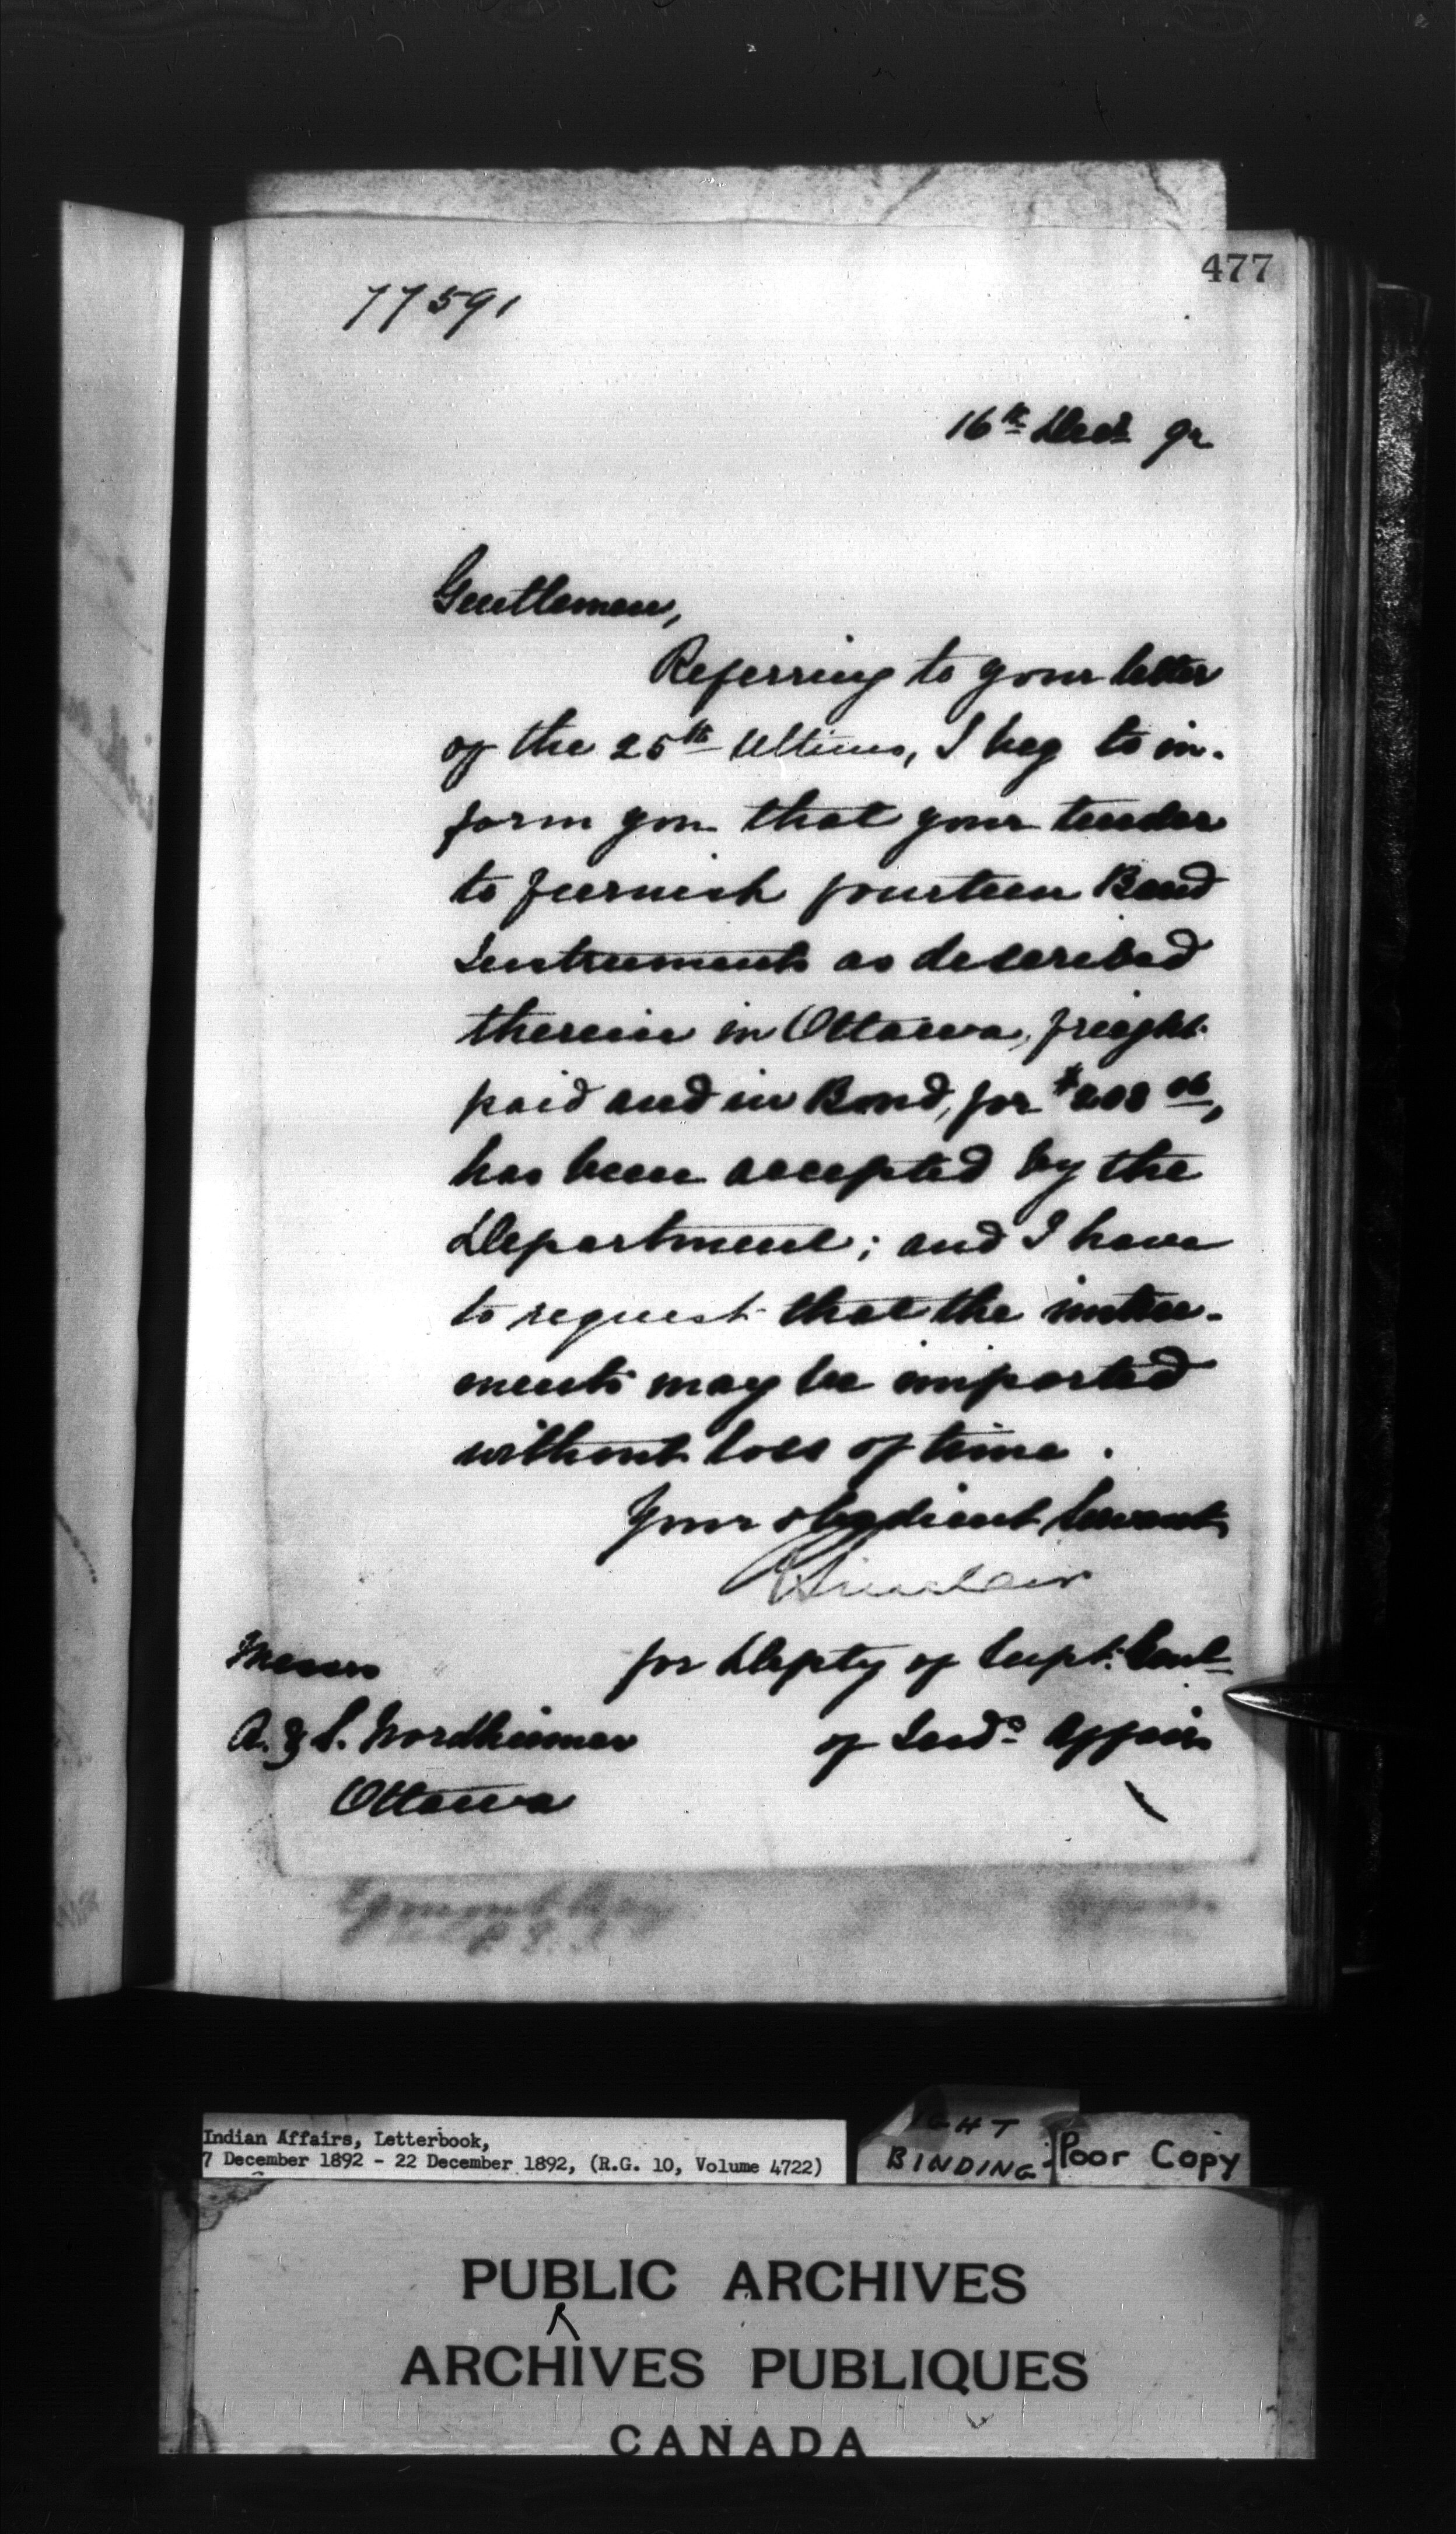 477
77591
16th Decr 92
Gentlemen,
Referring to your letter
of the 25th Ultimo, I beg to in-
form you that your tender
to furnish fourteen Band
Instruments as described
therein in Ottawa, freight
paid and in Bond, for $208
has been accepted by the
Department; and I have
to request that the instru-
ments may be imported
without loss of time.
Your obedient Servant,
Sinclair
for Depty of Supt. Genl
of Inds Affairs
Messrs
A. & S. Nordheimer
Ottawa
Egmont Bay
P. E. I.
Indian Affairs, Letterbook,
7 December 1892 - 22 December 1892, (R.G. 10, Volume 4722)
IGHT
BINDING
Poor Copy
PUBLIC ARCHIVES
ARCHIVES PUBLIQUES
CANADA